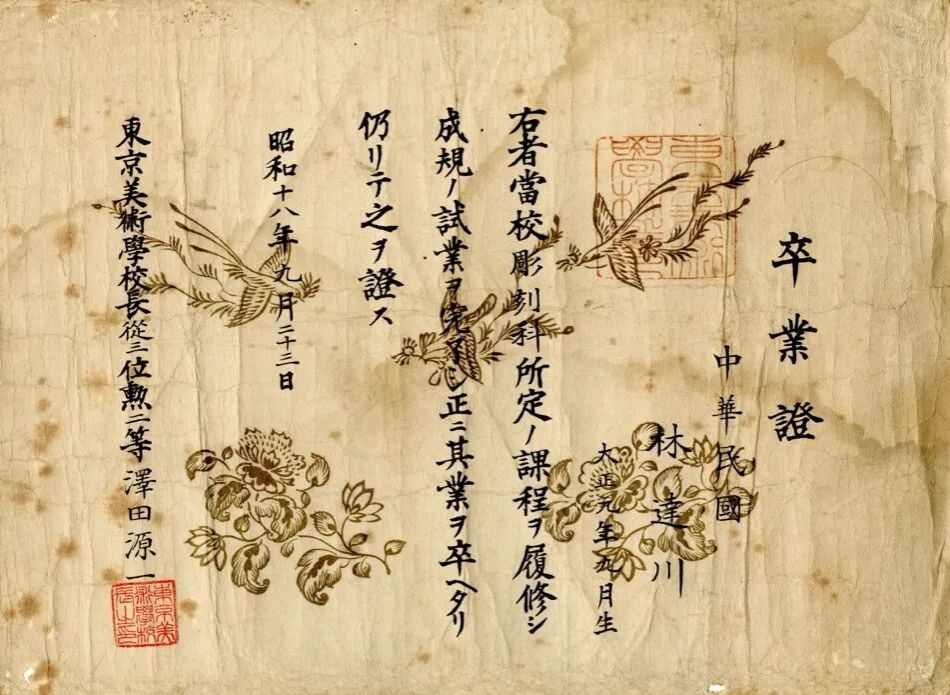 卒業證
中華民國
林達川
大正元年九月生
右者當校彫刻科所定ノ課程ヲ履修シ
成規ノ試業ヲ完了シ正ニ其業ヲ卒ヘタリ
仍リテ之ヲ證ス
昭和十八年九月二十三日
東京美術學校長從三位勲二等澤田源一
東京美
術學校
長之印